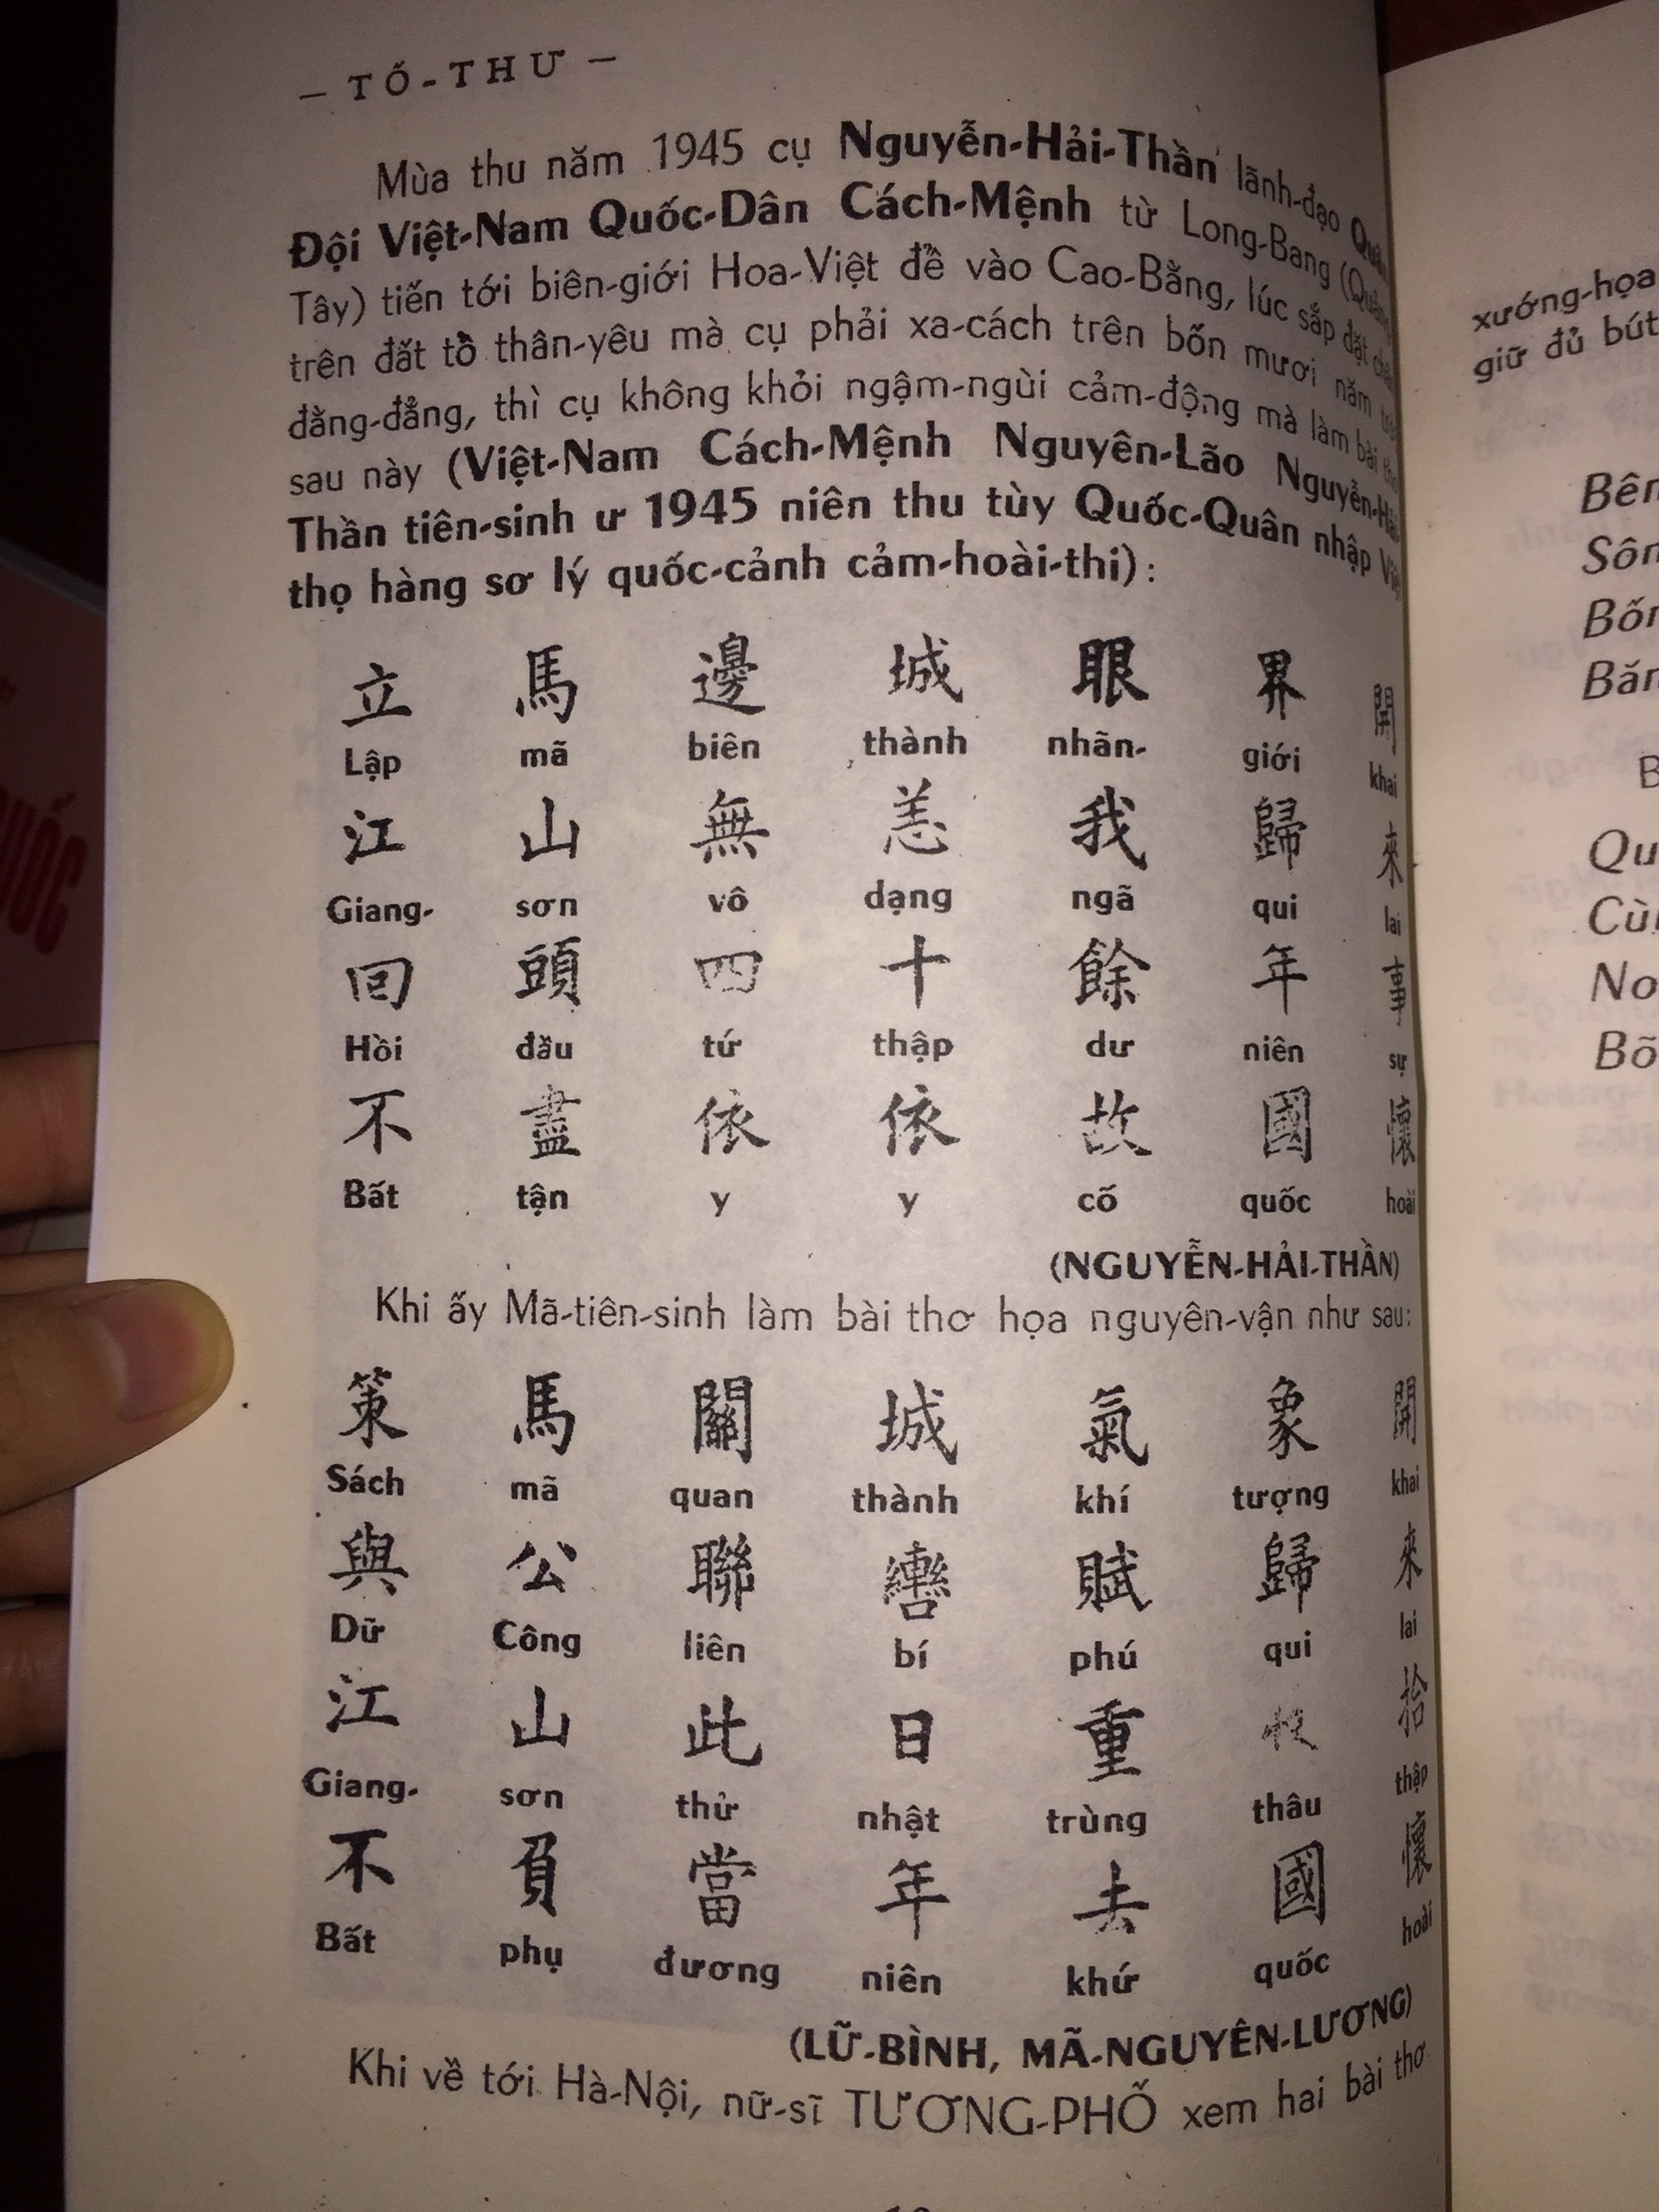 — TỐ-THƯ —
Mùa thu năm 1945 cụ Nguyễn-Hải-Thần lãnh-đạo Quân
Đội Việt-Nam Quốc-Dân Cách-Mệnh từ Long-Bang (Quảng
Tây) tiến tới biên-giới Hoa-Việt để vào Cao-Bằng, lúc sắp đặt chân
trên đất tổ thân-yêu mà cụ phải xa-cách trên bốn mươi năm
đằng-đẳng, thì cụ không khỏi ngậm-ngùi cảm-động mà làm bài thơ
sau này (Việt-Nam Cách-Mệnh Nguyên-Lão Nguyễn-Hải
Thần tiên-sinh ư 1945 niên thu tùy Quốc-Quân nhập Việt
thọ hàng sơ lý quốc-cảnh cảm-hoài-thi) :
立 馬 邊 城 眼 界 開
Lập mã biên thành nhãn- giới khai
江 山 無 恙 我 歸 來
Giang- sơn vô dạng ngã qui lai
回 頭 四 十 餘 年 事
Hồi đầu tứ thập dư niên sự
不 盡 依 依 故 國 懷
Bất tận y y cố quốc hoài
(NGUYỄN-HẢI-THẦN)
Khi ấy Mã-tiên-sinh làm bài thơ họa nguyên-vận như sau:
策 馬 關 城 氣 象 開
Sách mã quan thành khí tượng khai
與 公 聯 轡 賦 歸 來
Dữ Công liên bí phú qui lai
江 山 此 日 重 收 拾
Giang- sơn thử nhật trùng thâu thập
不 負 當 年 去 國 懷
Bất phụ đương niên khứ quốc hoài
(LỮ-BÌNH, MÃ-NGUYÊN-LƯƠNG)
Khi về tới Hà-Nội, nữ-sĩ TƯƠNG-PHỐ xem hai bài thơ
xướng-họa
giữ đủ bút